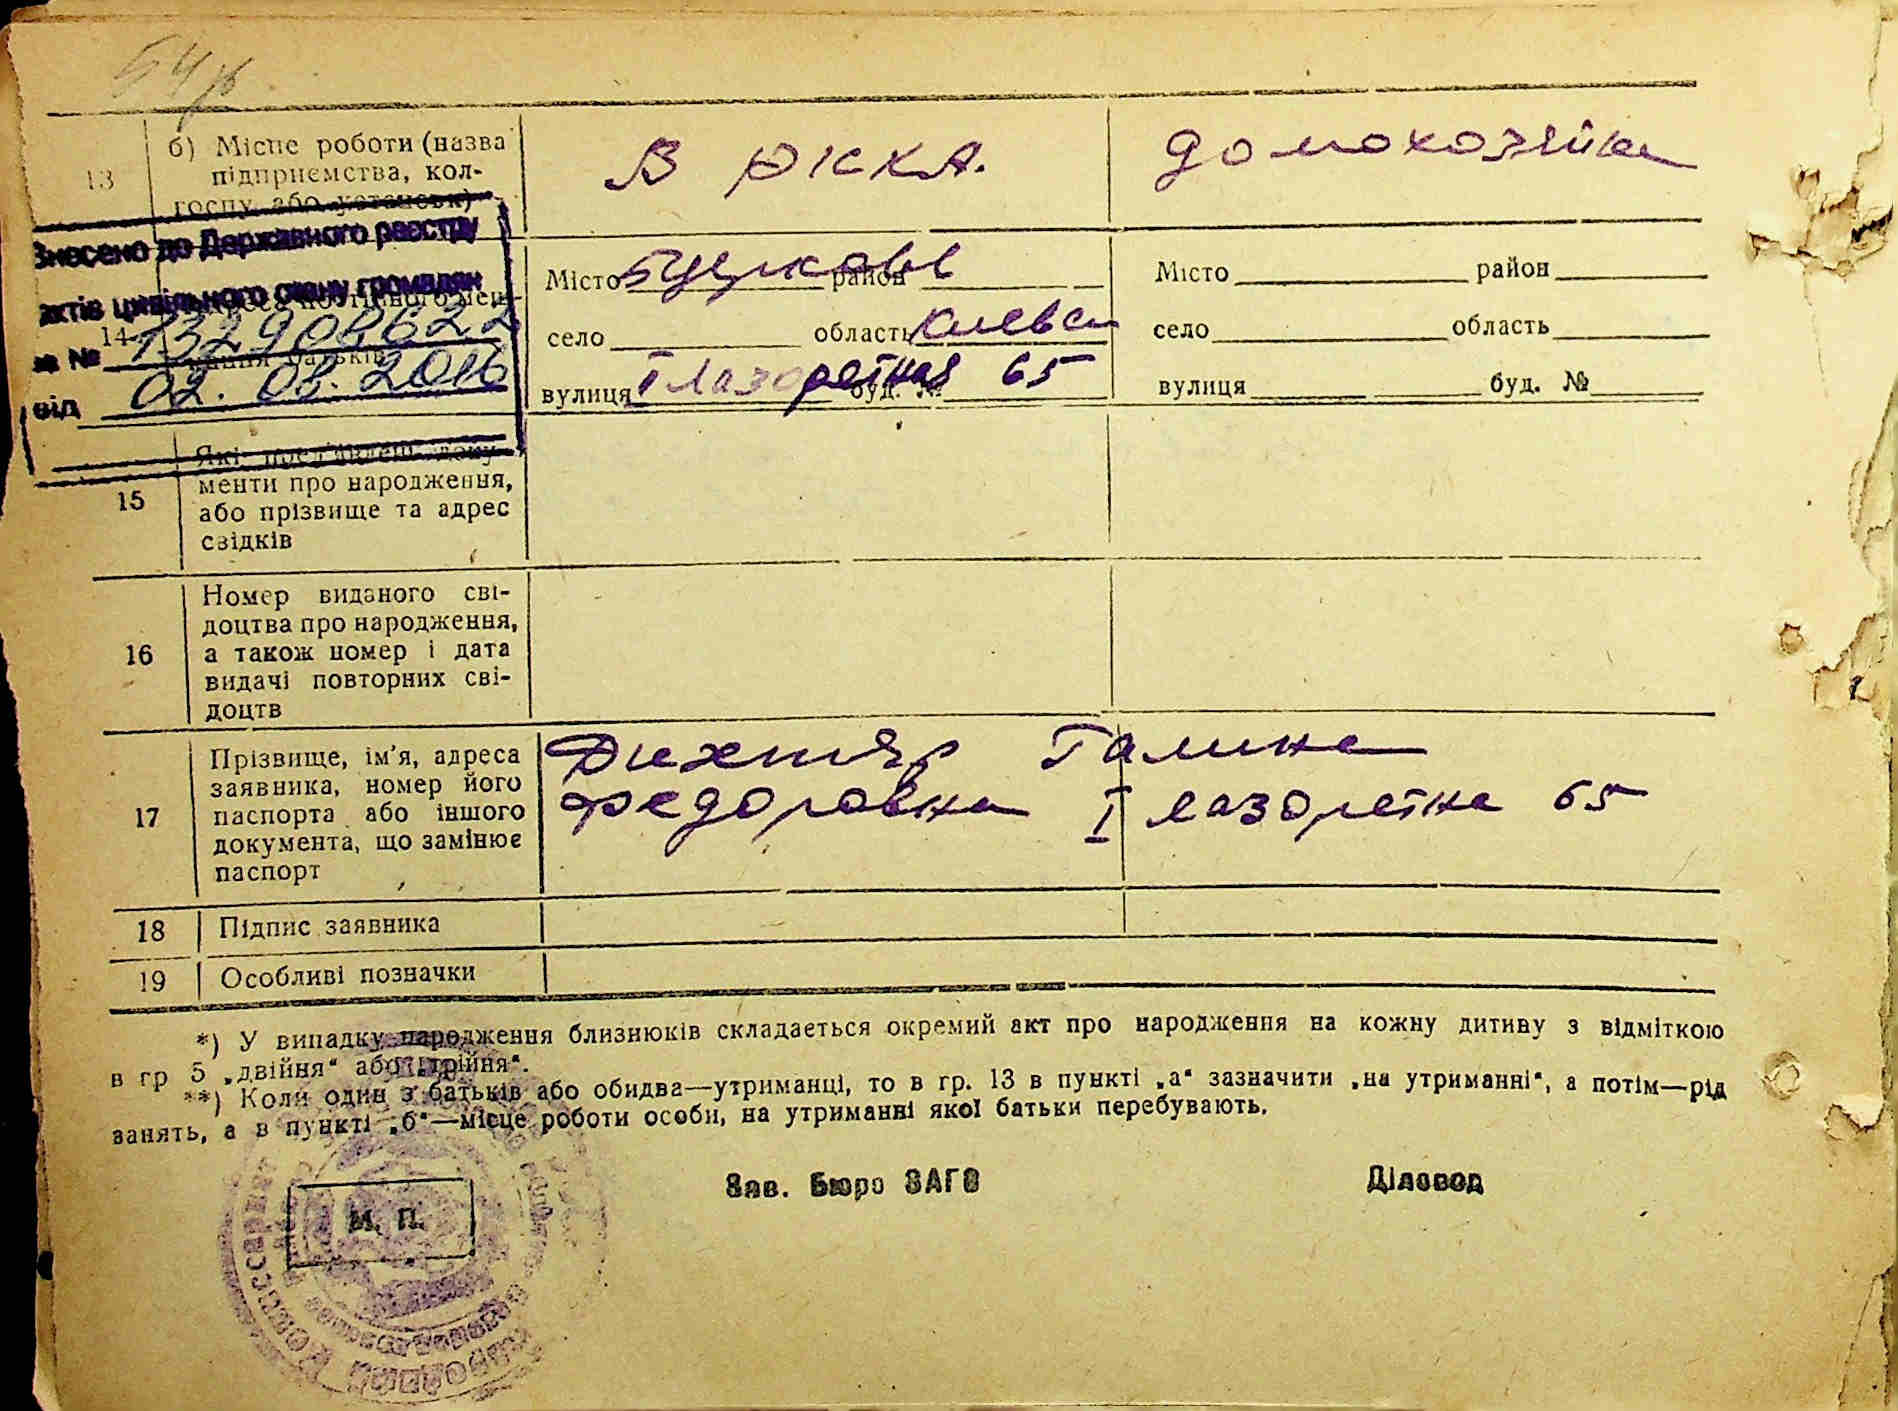 54
13
б) Місце роботи (назва
підприємства, кол-
госпу або установи)
В РККА.
домохозяйка
Внесено до Державного реєстру
актів цивільного стану громадян
за № 132908622
від 02. 08. 2016
14
Місто район
село область Киевск
вулиця I Лазоретная буд. № 65
Місто район
село область
вулиця буд. №
15
Які пред'явлені доку-
менти про народження,
або прізвище та адрес
свідків
16
Номер виданого сві-
доцтва про народження,
а також номер і дата
видачі повторних сві-
доцтв
17
Прізвище, ім'я, адреса
заявника, номер його
паспорта або іншого
документа, що замінює
паспорт
Дихтяр Галина
Федоровна I Лазоретна 65
18
Підпис заявника
19
Особливі позначки
*) У випадку народження близнюків складається окремий акт про народження на кожну дитину з відміткою
в гр 5 „двійня“ або „трійня“.
**) Коли один з батьків або обидва—утриманці, то в гр. 13 в пункті „а“ зазначити „на утриманні“, а потім—рід
занять, а в пункті „б“—місце роботи особи, на утриманні якої батьки перебувають.
Зав. Бюро ЗАГС
Діловод
М. П.